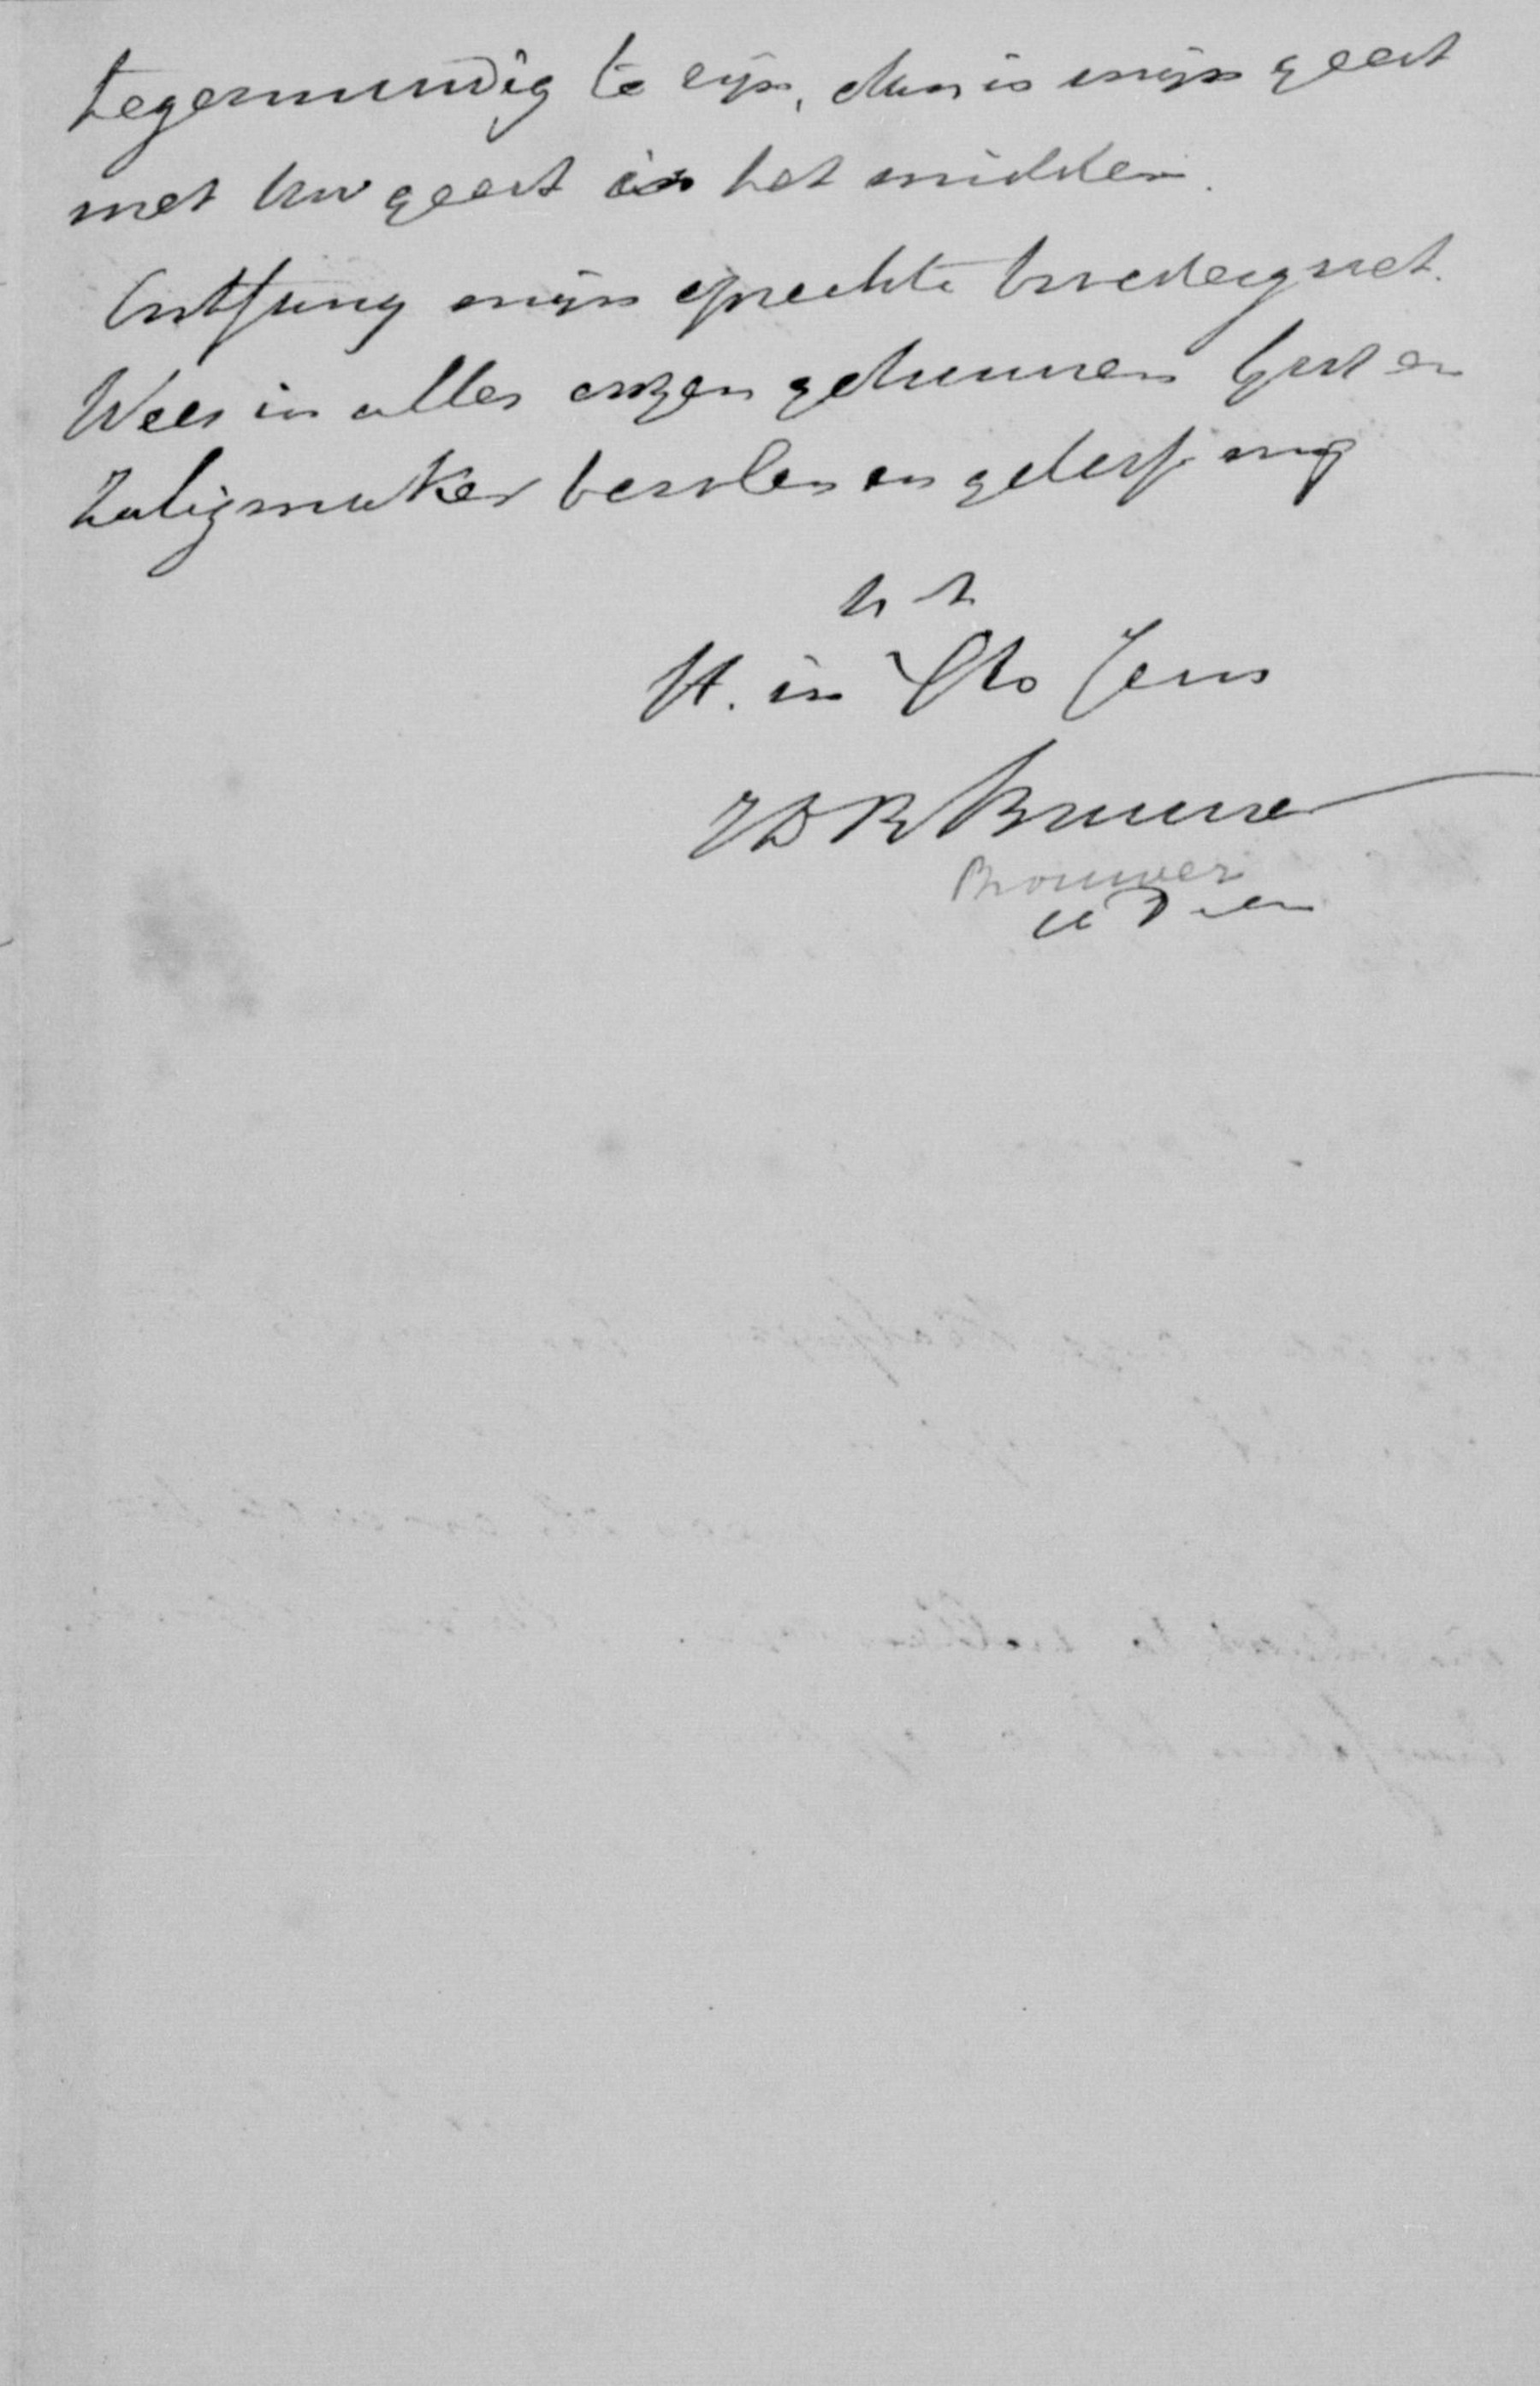 tegenwoordig te zijn, dan is mijn geest
met Uw geest in het midden.
Ontfang mijn oprechte broedergroet.
Wees in alles onzen getrouwen God en
Zaligmaker bevolen en geloof mij
t t
H. in Cto Jesus
Brouwer
Brouwer